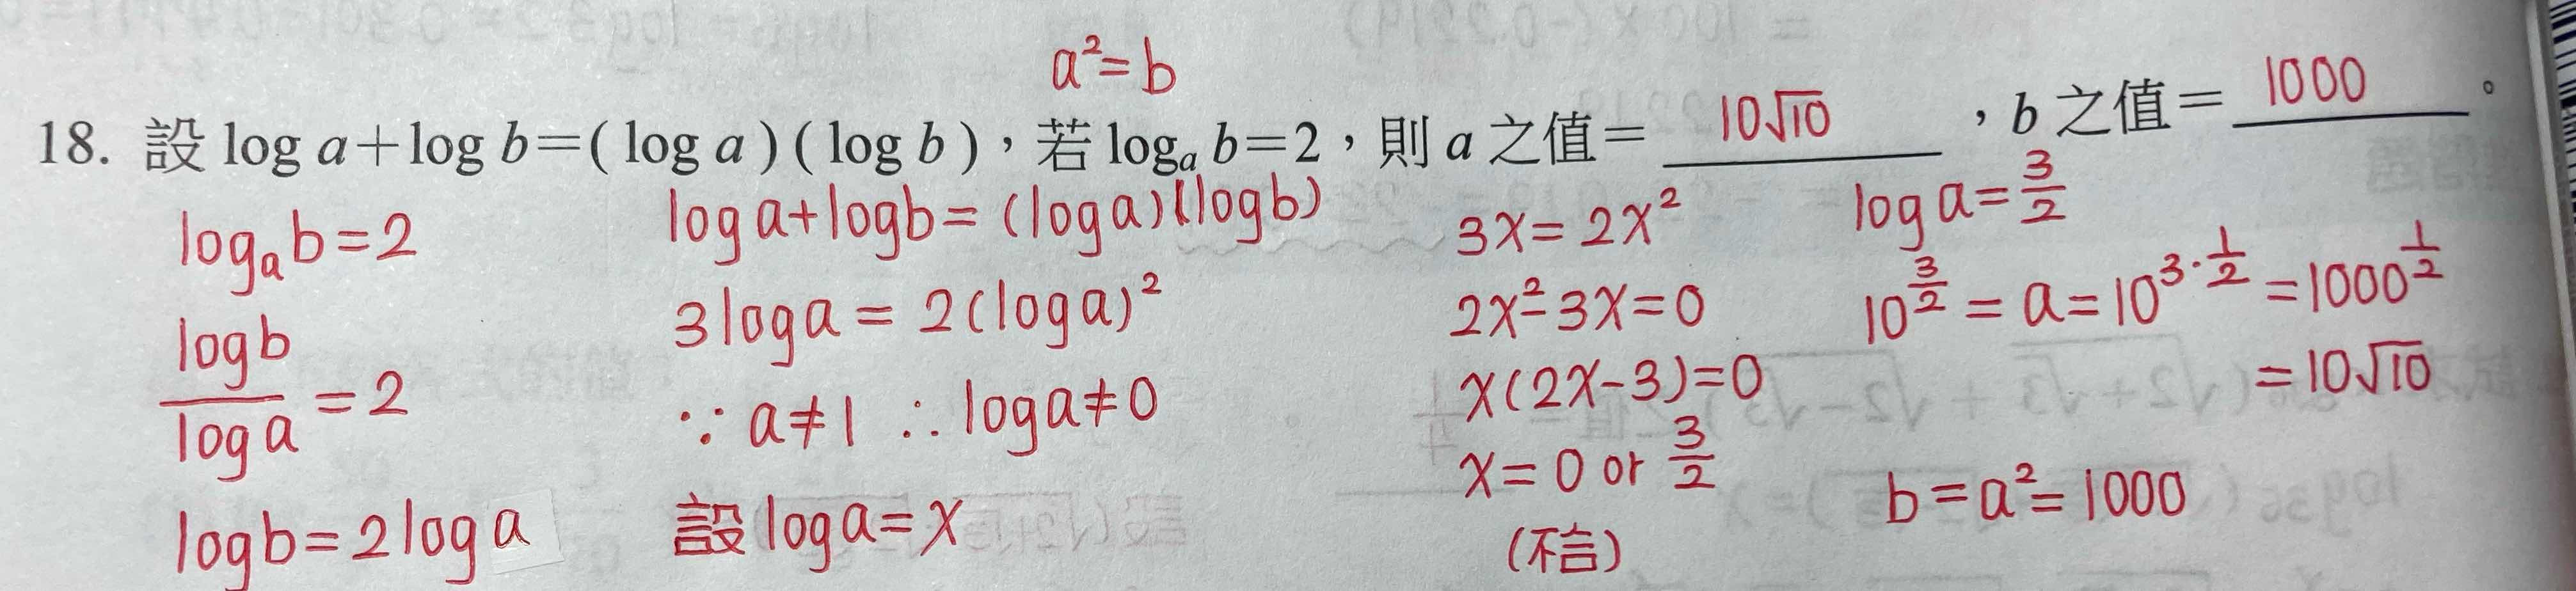 a²=b
18. 設 log a+log b=(log a)(log b),若 logₐ b=2,則 a 之值= 10√10 ,b 之值= 1000 。
logₐb=2
logb/loga=2
logb=2loga
loga+logb=(loga)(logb)
3loga=2(loga)²
∵a≠1 ∴loga≠0
設loga=x
3x=2x²
2x²-3x=0
x(2x-3)=0
x=0 or 3/2
(不合)
loga=3/2
10^(3/2)=a=10^(3·1/2)=1000^(1/2)
=10√10
b=a²=1000